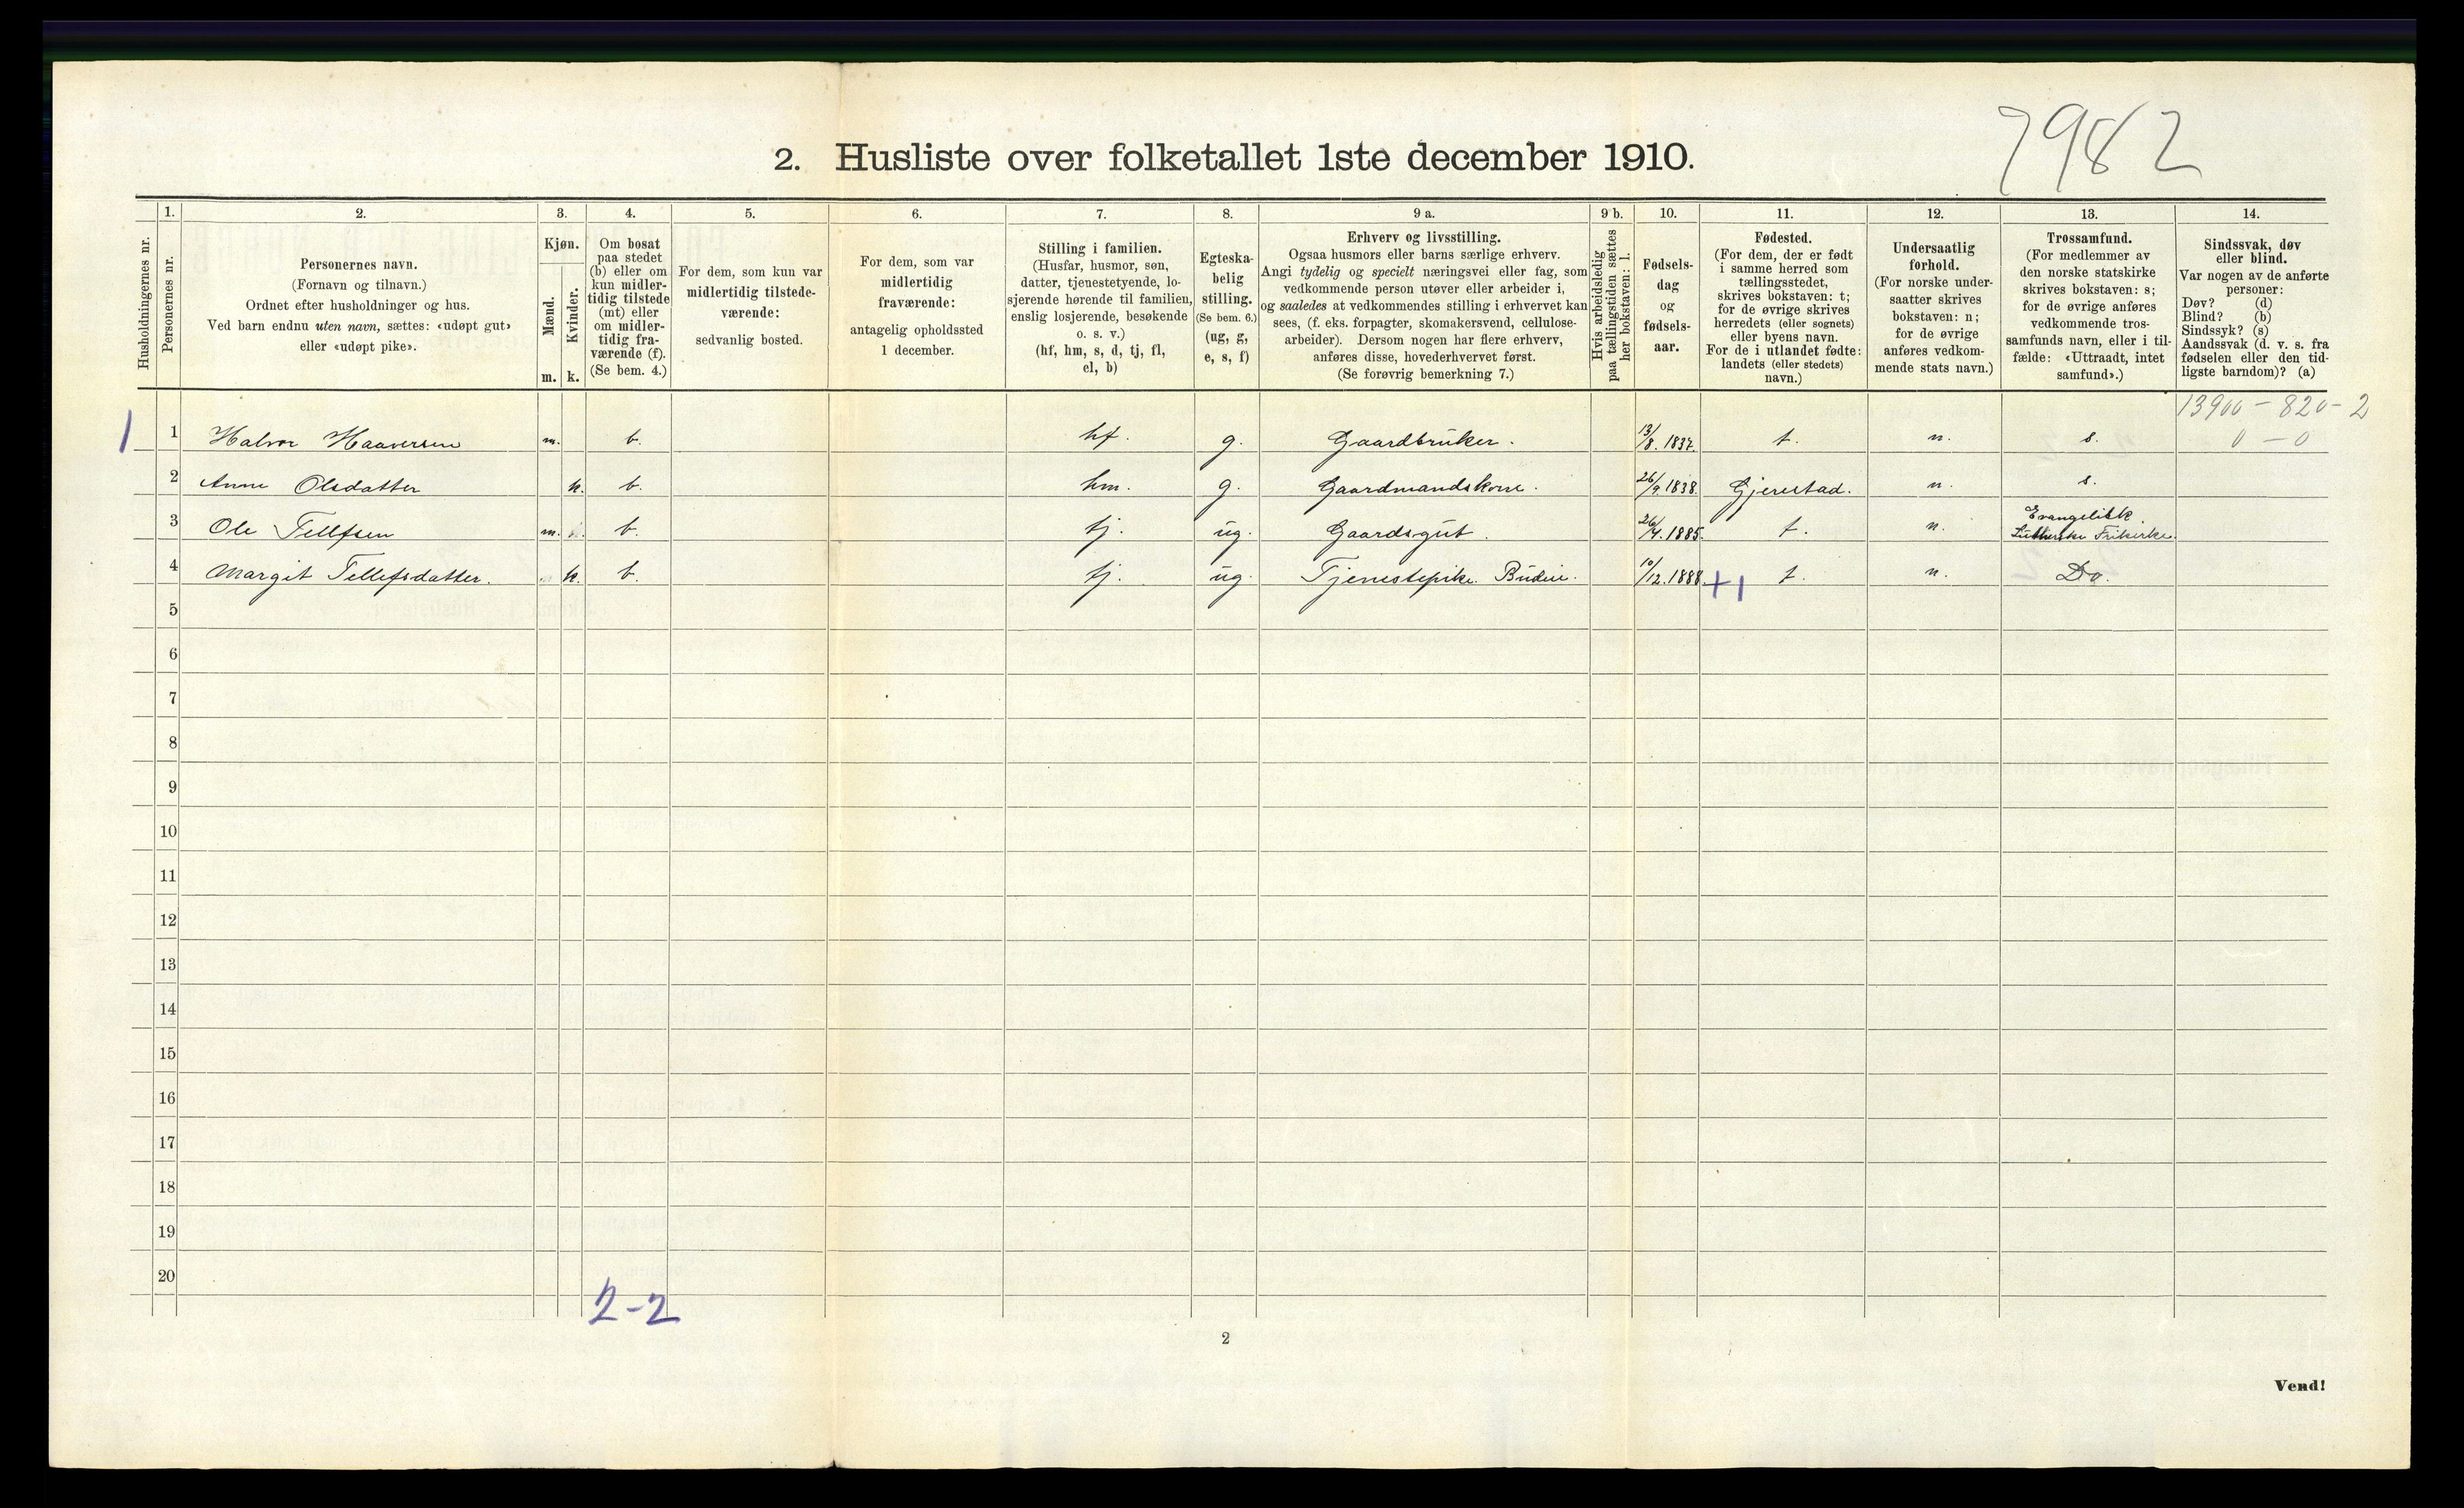 7982
2. Husliste over folketallet 1ste december 1910.
Husholdningernes nr.
1.
Personernes nr.
2.
Personernes navn.
(Fornavn og tilnavn.)
Ordnet efter husholdninger og hus.
Ved barn endnu uten navn, sættes: «udøpt gut»
eller «udøpt pike».
3.
Kjøn.
Mænd.
Kvinder.
m. k.
4.
Om bosat
paa stedet
(b) eller om
kun midler-
tidig tilstede
(mt) eller
om midler-
tidig fra-
værende (f).
(Se bem. 4.)
5.
For dem, som kun var
midlertidig tilstede-
værende:
sedvanlig bosted.
6.
For dem, som var
midlertidig
fraværende:
antagelig opholdssted
1 december.
7.
Stilling i familien.
(Husfar, husmor, søn,
datter, tjenestetyende, lo-
sjerende hørende til familien,
enslig losjerende, besøkende
o. s. v.)
(hf, hm, s, d, tj, fl,
el, b)
8.
Egteska-
belig
stilling.
(Se bem. 6.)
(ug, g,
e, s, f)
9 a.
Erhverv og livsstilling.
Ogsaa husmors eller barns særlige erhverv.
Angi tydelig og specielt næringsvei eller fag, som
vedkommende person utøver eller arbeider i,
og saaledes at vedkommendes stilling i erhvervet kan
sees, (f. eks. forpagter, skomakersvend, cellulose-
arbeider). Dersom nogen har flere erhverv,
anføres disse, hovederhvervet først.
(Se forøvrig bemerkning 7.)
9 b.
Hvis arbeidsledig
paa tællingstiden sættes
her bokstaven: l.
10.
Fødsels-
dag
og
fødsels-
aar.
11.
Fødested.
(For dem, der er født
i samme herred som
tællingsstedet,
skrives bokstaven: t;
for de øvrige skrives
herredets (eller sognets)
eller byens navn.
For de i utlandet fødte:
landets (eller stedets)
navn.)
12.
Undersaatlig
forhold.
(For norske under-
saatter skrives
bokstaven: n;
for de øvrige
anføres vedkom-
mende stats navn.)
13.
Trossamfund.
(For medlemmer av
den norske statskirke
skrives bokstaven: s;
for de øvrige anføres
vedkommende tros-
samfunds navn, eller i til-
fælde: «Uttraadt, intet
samfund».)
14.
Sindssvak, døv
eller blind.
Var nogen av de anførte
personer:
Døv? (d)
Blind? (b)
Sindssyk? (s)
Aandssvak (d. v. s. fra
fødselen eller den tid-
ligste barndom)? (a)
13900 - 820 - 2
0 - 0
1 1 Halvor Haaversen m. b. hf. g. Gaardbruker. 13/8. 1837. t. n. s.
2 Anne Olsdatter k. b. hm. g. Gaardmandskone. 26/9. 1838. Gjerestad. n. s.
3 Ole Tellfsen m. b. tj. ug. Gaardsgut. 26/4. 1885. t. n. Evangelisk
Lutherske Frikirke.
4 Margit Tellefsdatter. k. b. tj. ug. Tjenestepike. Budeie. 10/12. 1888. +1 t. n. Do.
5
6
7
8
9
10
11
12
13
14
15
16
17
18
19
20
2-2
2
Vend!